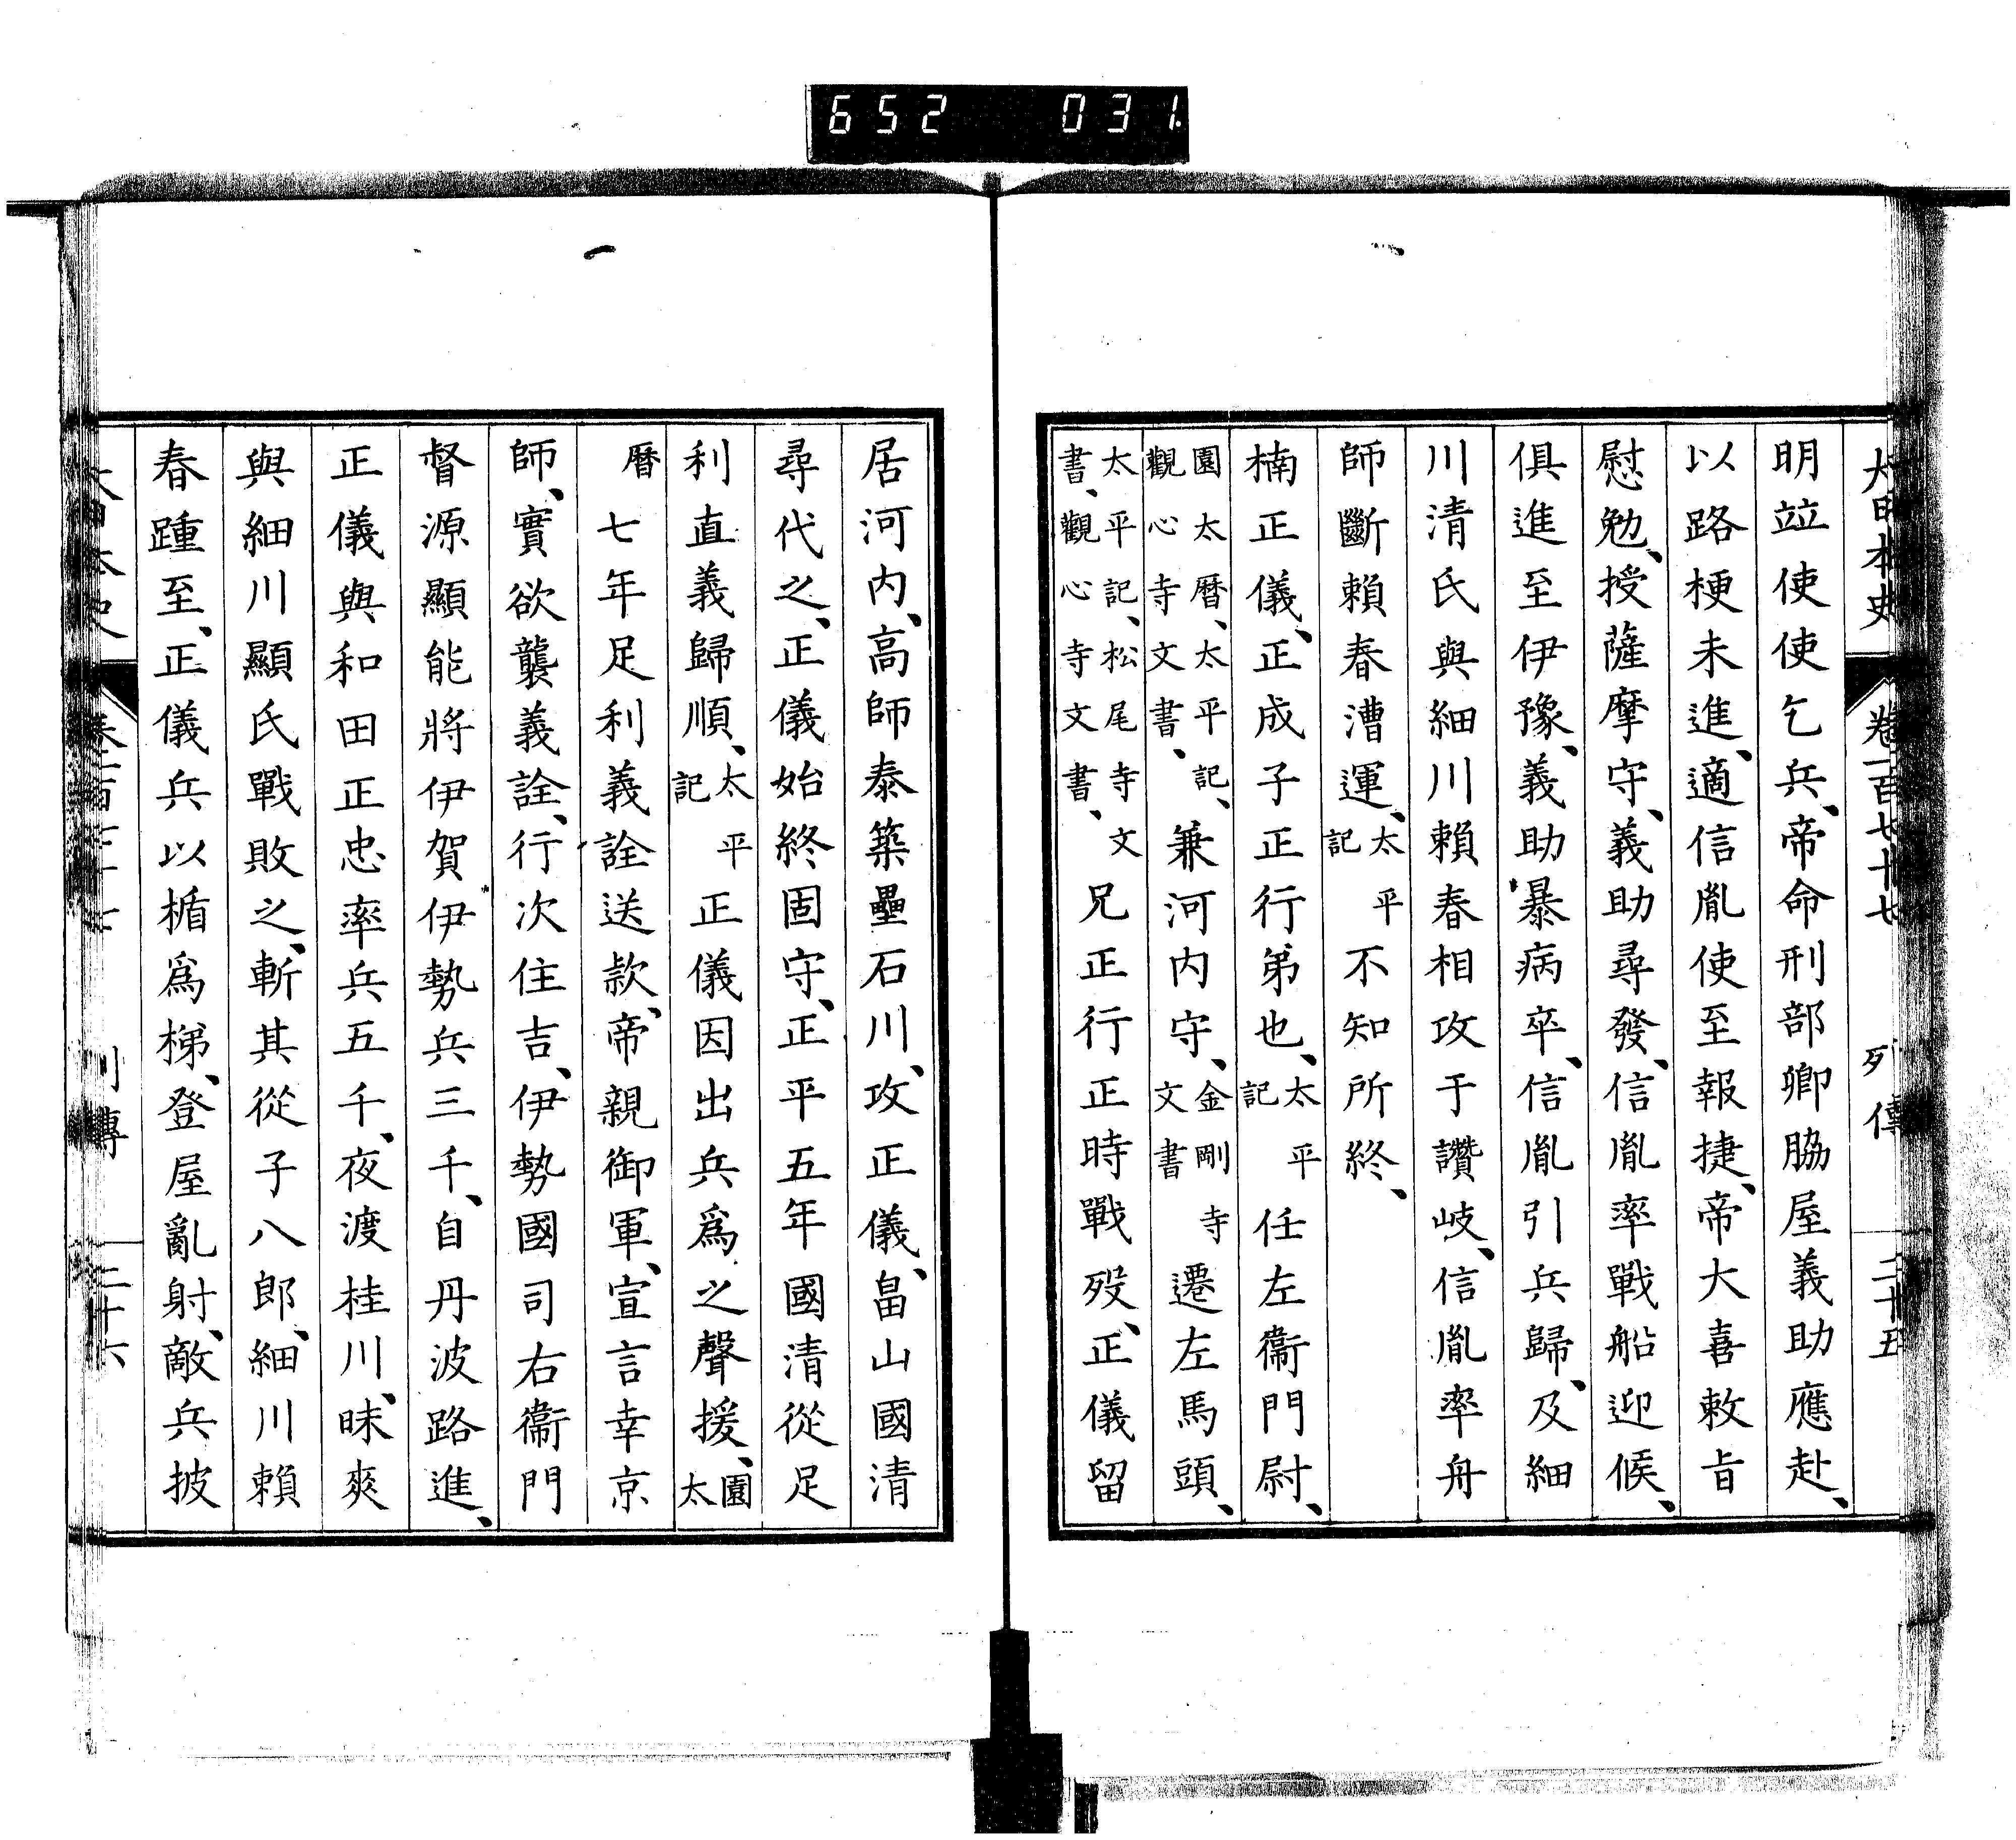 652 031
大日本史 卷一百七十七 列傳 二十五
明竝使使乞兵、帝命刑部卿脇屋義助應赴、
以路梗未進、適信胤使至報捷、帝大喜敕旨
慰勉、授薩摩守、義助尋發、信胤率戰船迎候、
俱進至伊豫、義助暴病卒、信胤引兵歸、及細
川清氏與細川賴春相攻于讚岐、信胤率舟
師斷賴春漕運、太平記不知所終、
楠正儀、正成子正行弟也、太平記任左衞門尉、
園太曆、太平記、觀心寺文書、兼河内守、金剛寺文書遷左馬頭、
太平記、松尾寺文書、觀心寺文書、兄正行正時戰歿、正儀留
居河内、高師泰築壘石川、攻正儀、畠山國清
尋代之、正儀始終固守、正平五年國清從足
利直義歸順、太平記正儀因出兵爲之聲援、園太
曆七年足利義詮送款、帝親御軍、宣言幸京
師、實欲襲義詮、行次住吉、伊勢國司右衞門
督源顯能將伊賀伊勢兵三千、自丹波路進、
正儀與和田正忠率兵五千、夜渡桂川、昧爽
與細川顯氏戰敗之、斬其從子八郎、細川賴
春踵至、正儀兵以楯爲梯、登屋亂射、敵兵披
列傳 二十六